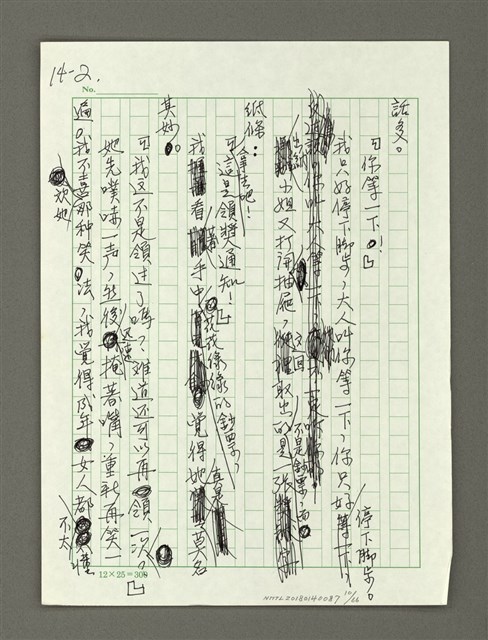 14-2.
No.
話多。
「你等一下！」
我只好停下腳步，大人叫你等一下，你只好停下腳步。
出納小姐又打開抽屜，這回取出的是一張
不是鈔票，而
紙條：
「拿去吧！
這是領獎通知！」
我看著手中花花綠綠的鈔票，覺得她真是莫名
其妙。
「我這不是領過了嗎？難道還可以再領一次？」
她先噗哧一声，然後又連掩著嘴，重新再笑一
遍。我不喜歡她那种笑法，我覺得成年女人都不太懂
12×25=300
NMTL20180140087
10/66